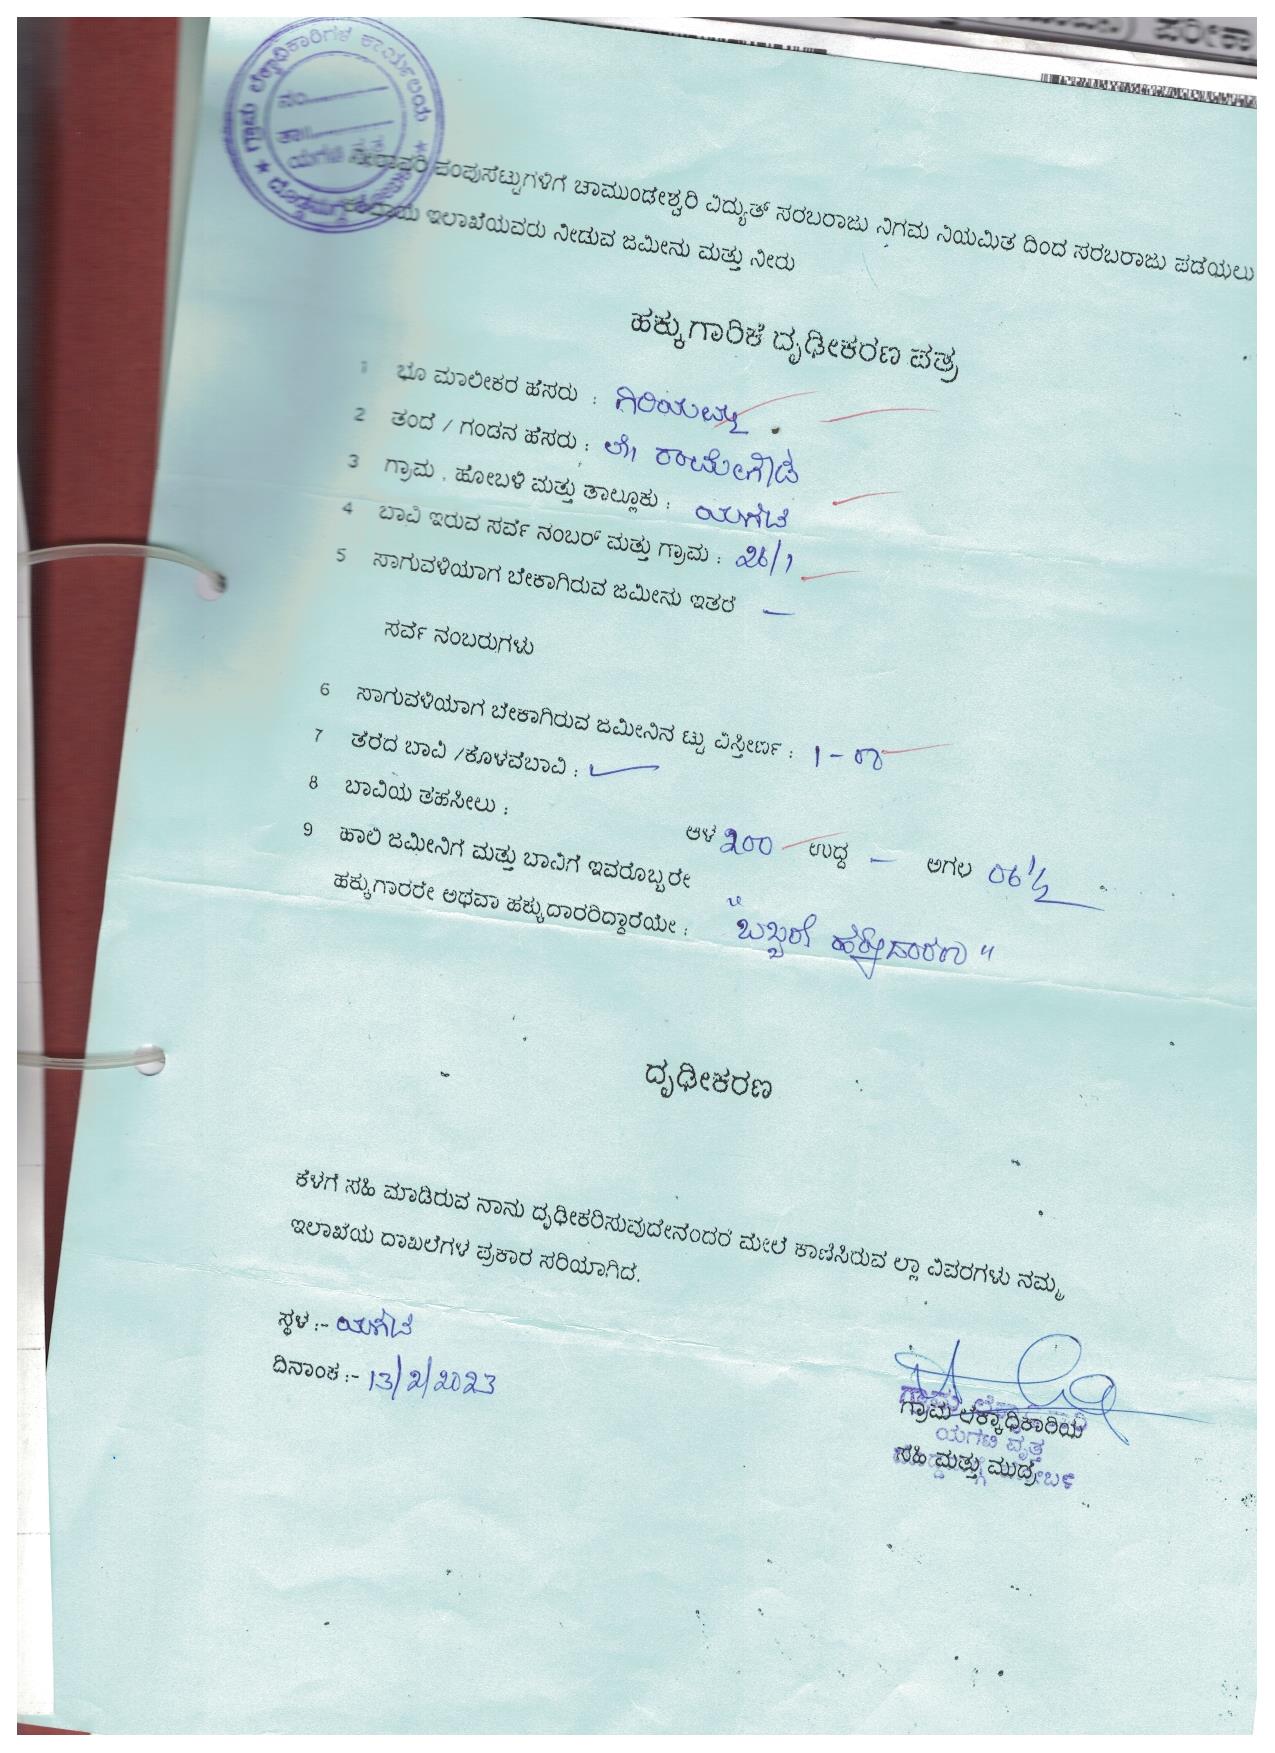 ಗ್ರಾಮ ಲೆಕ್ಕಾಧಿಕಾರಿಗಳ ಕಾರ್ಯಾಲಯ
ನಂ
ತಾ||
ಯಗಟಿ ವೃತ್ತ
ನೀರಾವರಿ ಪಂಪುಸೆಟ್ಟುಗಳಿಗೆ ಚಾಮುಂಡೇಶ್ವರಿ ವಿದ್ಯುತ್ ಸರಬರಾಜು ನಿಗಮ ನಿಯಮಿತ ದಿಂದ ಸರಬರಾಜು ಪಡೆಯಲು
ಕಂದಾಯ ಇಲಾಖೆಯವರು ನೀಡುವ ಜಮೀನು ಮತ್ತು ನೀರು
ಹಕ್ಕುಗಾರಿಕೆ ದೃಢೀಕರಣ ಪತ್ರ
1 ಭೂ ಮಾಲೀಕರ ಹೆಸರು : ಗಿರಿಯಪ್ಪ
2 ತಂದೆ / ಗಂಡನ ಹೆಸರು : ಲೇ|| ರಾಮೇಗೌಡ
3 ಗ್ರಾಮ , ಹೋಬಳಿ ಮತ್ತು ತಾಲ್ಲೂಕು : ಯಗಟಿ
4 ಬಾವಿ ಇರುವ ಸರ್ವೆ ನಂಬರ್ ಮತ್ತು ಗ್ರಾಮ : 26/1
5 ಸಾಗುವಳಿಯಾಗ ಬೇಕಾಗಿರುವ ಜಮೀನು ಇತರೆ —
ಸರ್ವೆ ನಂಬರುಗಳು
6 ಸಾಗುವಳಿಯಾಗ ಬೇಕಾಗಿರುವ ಜಮೀನಿನ ಟ್ಟು ವಿಸ್ತೀರ್ಣ : 1-00
7 ತೆರೆದ ಬಾವಿ /ಕೊಳವೆಬಾವಿ :
8 ಬಾವಿಯ ತಹಸೀಲು :
ಆಳ 200 ಉದ್ದ — ಅಗಲ 06½
9 ಹಾಲಿ ಜಮೀನಿಗೆ ಮತ್ತು ಬಾವಿಗೆ ಇವರೊಬ್ಬರೇ
ಹಕ್ಕುಗಾರರೇ ಅಥವಾ ಹಕ್ಕುದಾರರಿದ್ದಾರೆಯೇ : "ಒಬ್ಬರೇ ಹಕ್ಕುದಾರರು"
ದೃಢೀಕರಣ
ಕೆಳಗೆ ಸಹಿ ಮಾಡಿರುವ ನಾನು ದೃಢೀಕರಿಸುವುದೇನೆಂದರೆ ಮೇಲೆ ಕಾಣಿಸಿರುವ ಲ್ಲಾ ವಿವರಗಳು ನಮ್ಮ
ಇಲಾಖೆಯ ದಾಖಲೆಗಳ ಪ್ರಕಾರ ಸರಿಯಾಗಿದೆ.
ಸ್ಥಳ :- ಯಗಟಿ
ದಿನಾಂಕ :- 13/2/2023
ಗ್ರಾಮ ಲೆಕ್ಕಾಧಿಕಾರಿಯ
ಯಗಟಿ ವೃತ್ತ
ಸಹಿ ಮತ್ತು ಮುದ್ರೆ